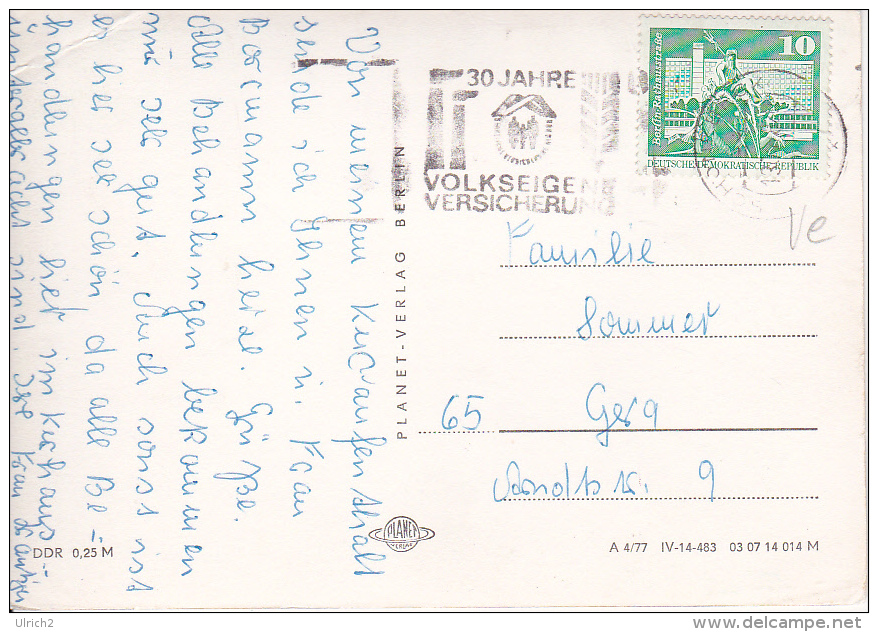 Von meinem Kuraufenthalt
sende ich Ihnen u. Frau
Bormann herzl. Grüße.
Alle Behandlungen bekommen
mir sehr gut. Auch sonst ist
es hier sehr schön da alle Be=
handlungen hier im Kurhaus
sind. Ihre Frau
30 JAHRE
VOLKSEIGENE
VERSICHERUNG
10
Berlin
DEUTSCHE DEMOKRATISCHE REPUBLIK
Ve
Familie
Sommer
65 Gera
Arndtstr. 9
PLANET-VERLAG BERLIN
PLANET
VERLAG
DDR 0,25 M
A 4/77 IV-14-483 03 07 14 014 M
Ulrich2
www.delcampe.net